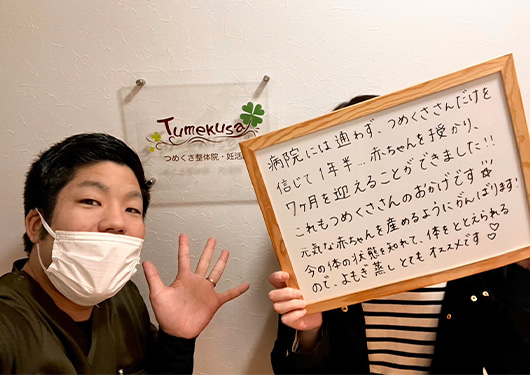 Tumekusa
つめくさ整体院・妊活
病院には通わず、つめくささんだけを
信じて1年半…赤ちゃんを授かり、
7ヶ月を迎えることができました!!
これもつめくささんのおかげです
元気な赤ちゃんを産めるようにがんばります!
今の体の状態を知れて、体をととえられる
ので、よもぎ蒸しとてもオススメです♡